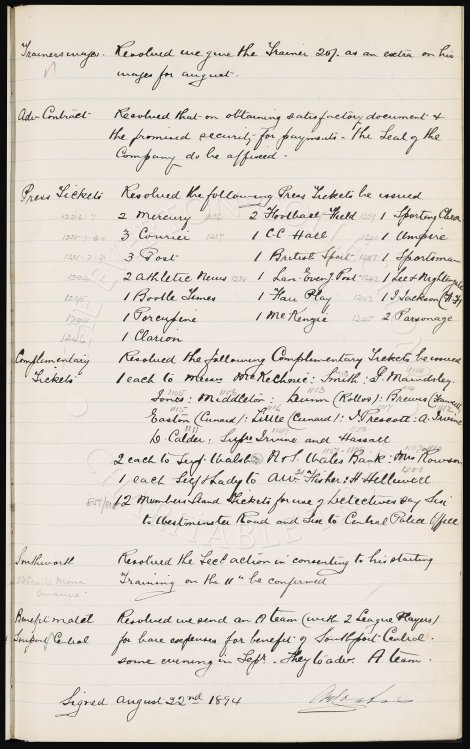 Trainers wages. Resolved we give the Trainer 20/. as an extra on his
wages for august.
Adv Contract Resolved that on obtaining satisfactory document &
the promised security for payments - the Seal of the
Company do be affixed.
Press Tickets Resolved the following Press Tickets be issued
2 Mercury 2 Football Field 1 Sporting Chron
3 Courier 1 CC Hall 1 Umpire
3 Post 1 British Sport 1 Sportsman
2 Athletic News 1 Lan Even'g Post 1 Lee & Nightingale
1 Bootle Times 1 Fair Play 1 Jackson
1 Porcupine 1 McKenzie 2 Parsonage
1 Clarion
Complimentary Resolved the following Complimentary Tickets be issued
Tickets 1 each to Messrs McKechnie: Smith: Mawdsley
Jones: Middleton: Dunn: Brewis
Easton (Cunard): Little (Cunard): Prescott: A. Irvine
D. Calder: Supts Irvine and Hassall
2 each to Walsh Wales Bank: Mrs Rowson
1 each Self & Lady to Fisher: H Helliwell
12 Members Stand Tickets for use of Detectives say Six
to Westminster Road and Six to Central Police Office
Southworth Resolved the Sec! action in consenting to his starting
Training on the 11th be confirmed
Benefit match Resolved we send an A team (with 2 League Players)
Central for bare expenses for benefit of Southport Central
some evening in Sept. They to adv. A team.
Signed August 22nd 1894